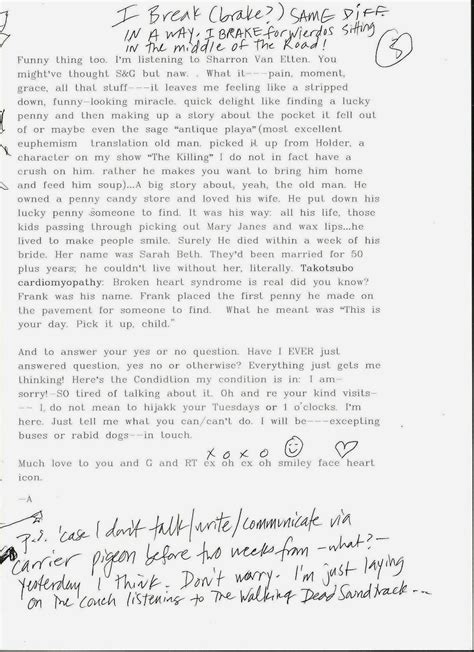 I Break (brake?) SAME DIFF.
IN A WAY, I BRAKE for wierdos sitting
in the middle of the Road!
5
Funny thing too. I'm listening to Sharron Van Etten. You
might've thought S&G but naw. . What it---pain, moment,
grace, all that stuff---it leaves me feeling like a stripped
down, funny-looking miracle. quick delight like finding a lucky
penny and then making up a story about the pocket it fell out
of or maybe even the sage "antique playa"(most excellent
euphemism translation old man. picked it up from Holder, a
character on my show "The Killing" I do not in fact have a
crush on him. rather he makes you want to bring him home
and feed him soup)...A big story about, yeah, the old man. He
owned a penny candy store and loved his wife. He put down his
lucky penny someone to find. It was his way: all his life, those
kids passing through picking out Mary Janes and wax lips...he
lived to make people smile. Surely He died within a week of his
bride. Her name was Sarah Beth. They'd been married for 50
plus years; he couldn't live without her, literally. Takotsubo
cardiomyopathy: Broken heart syndrome is real did you know?
Frank was his name. Frank placed the first penny he made on
the pavement for someone to find. What he meant was "This is
your day. Pick it up, child."
And to answer your yes or no question. Have I EVER just
answered question, yes no or otherwise? Everything just gets me
thinking! Here's the Condidtion my condition is in: I am—
sorry!-SO tired of talking about it. Oh and re your kind visits---
-- I, do not mean to hijakk your Tuesdays or 1 o'clocks. I'm
here. Just tell me what you can/can't do. I will be---excepting
buses or rabid dogs--in touch.
x o x o
Much love to you and G and RT ex oh ex oh smiley face heart
icon.
—A
p.s. 'case I don't talk/write/communicate via
carrier pigeon before two weeks from -what?-
yesterday I think. Don't worry. I'm just laying
on the couch listening to The Walking Dead Soundtrack...